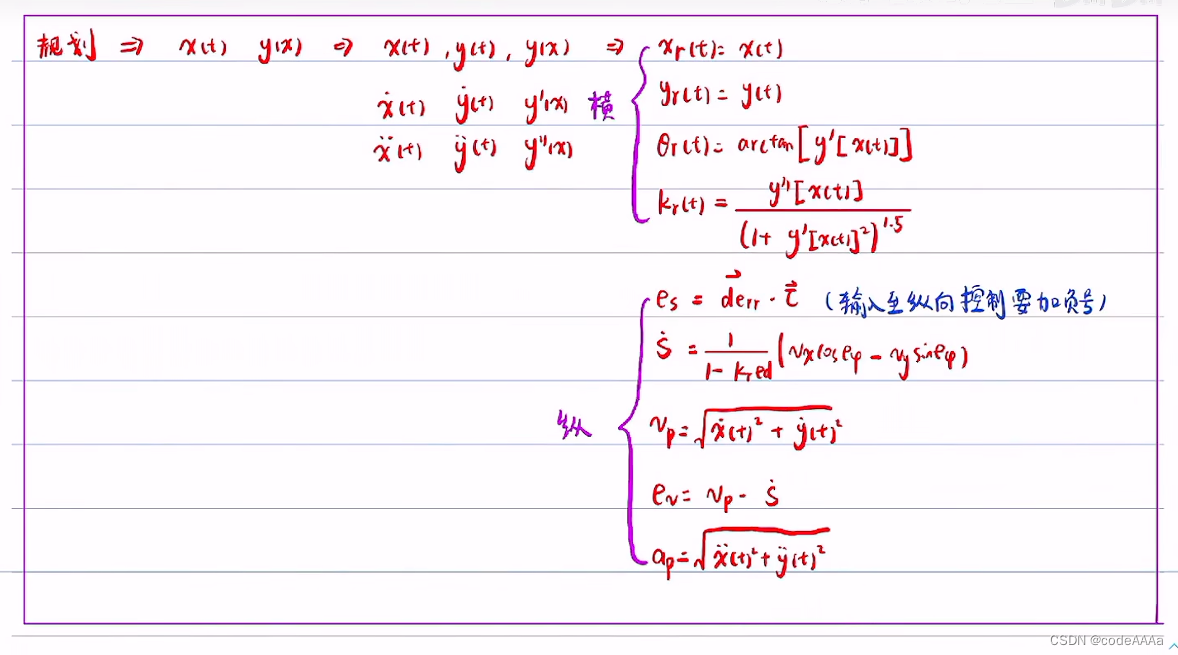 规划 ⇒ x(t) y(x) ⇒ x(t), y(t), y(x) ⇒
ẋ(t) ẏ(t) y'(x)
ẍ(t) ÿ(t) y''(x)
横
xr(t) = x(t)
yr(t) = y(t)
θr(t) = arctan[y'[x(t)]]
kr(t) = y''[x(t)] / (1 + y'[x(t)]²)^1.5
纵
es = d⃗err · τ⃗ (输入至纵向控制要加负号)
ṡ = 1 / (1 - kr ed) (vx cos eφ - vy sin eφ)
vp = √(ẋ(t)² + ẏ(t)²)
ev = vp - ṡ
ap = √(ẍ(t)² + ÿ(t)²)
CSDN @codeAAAa